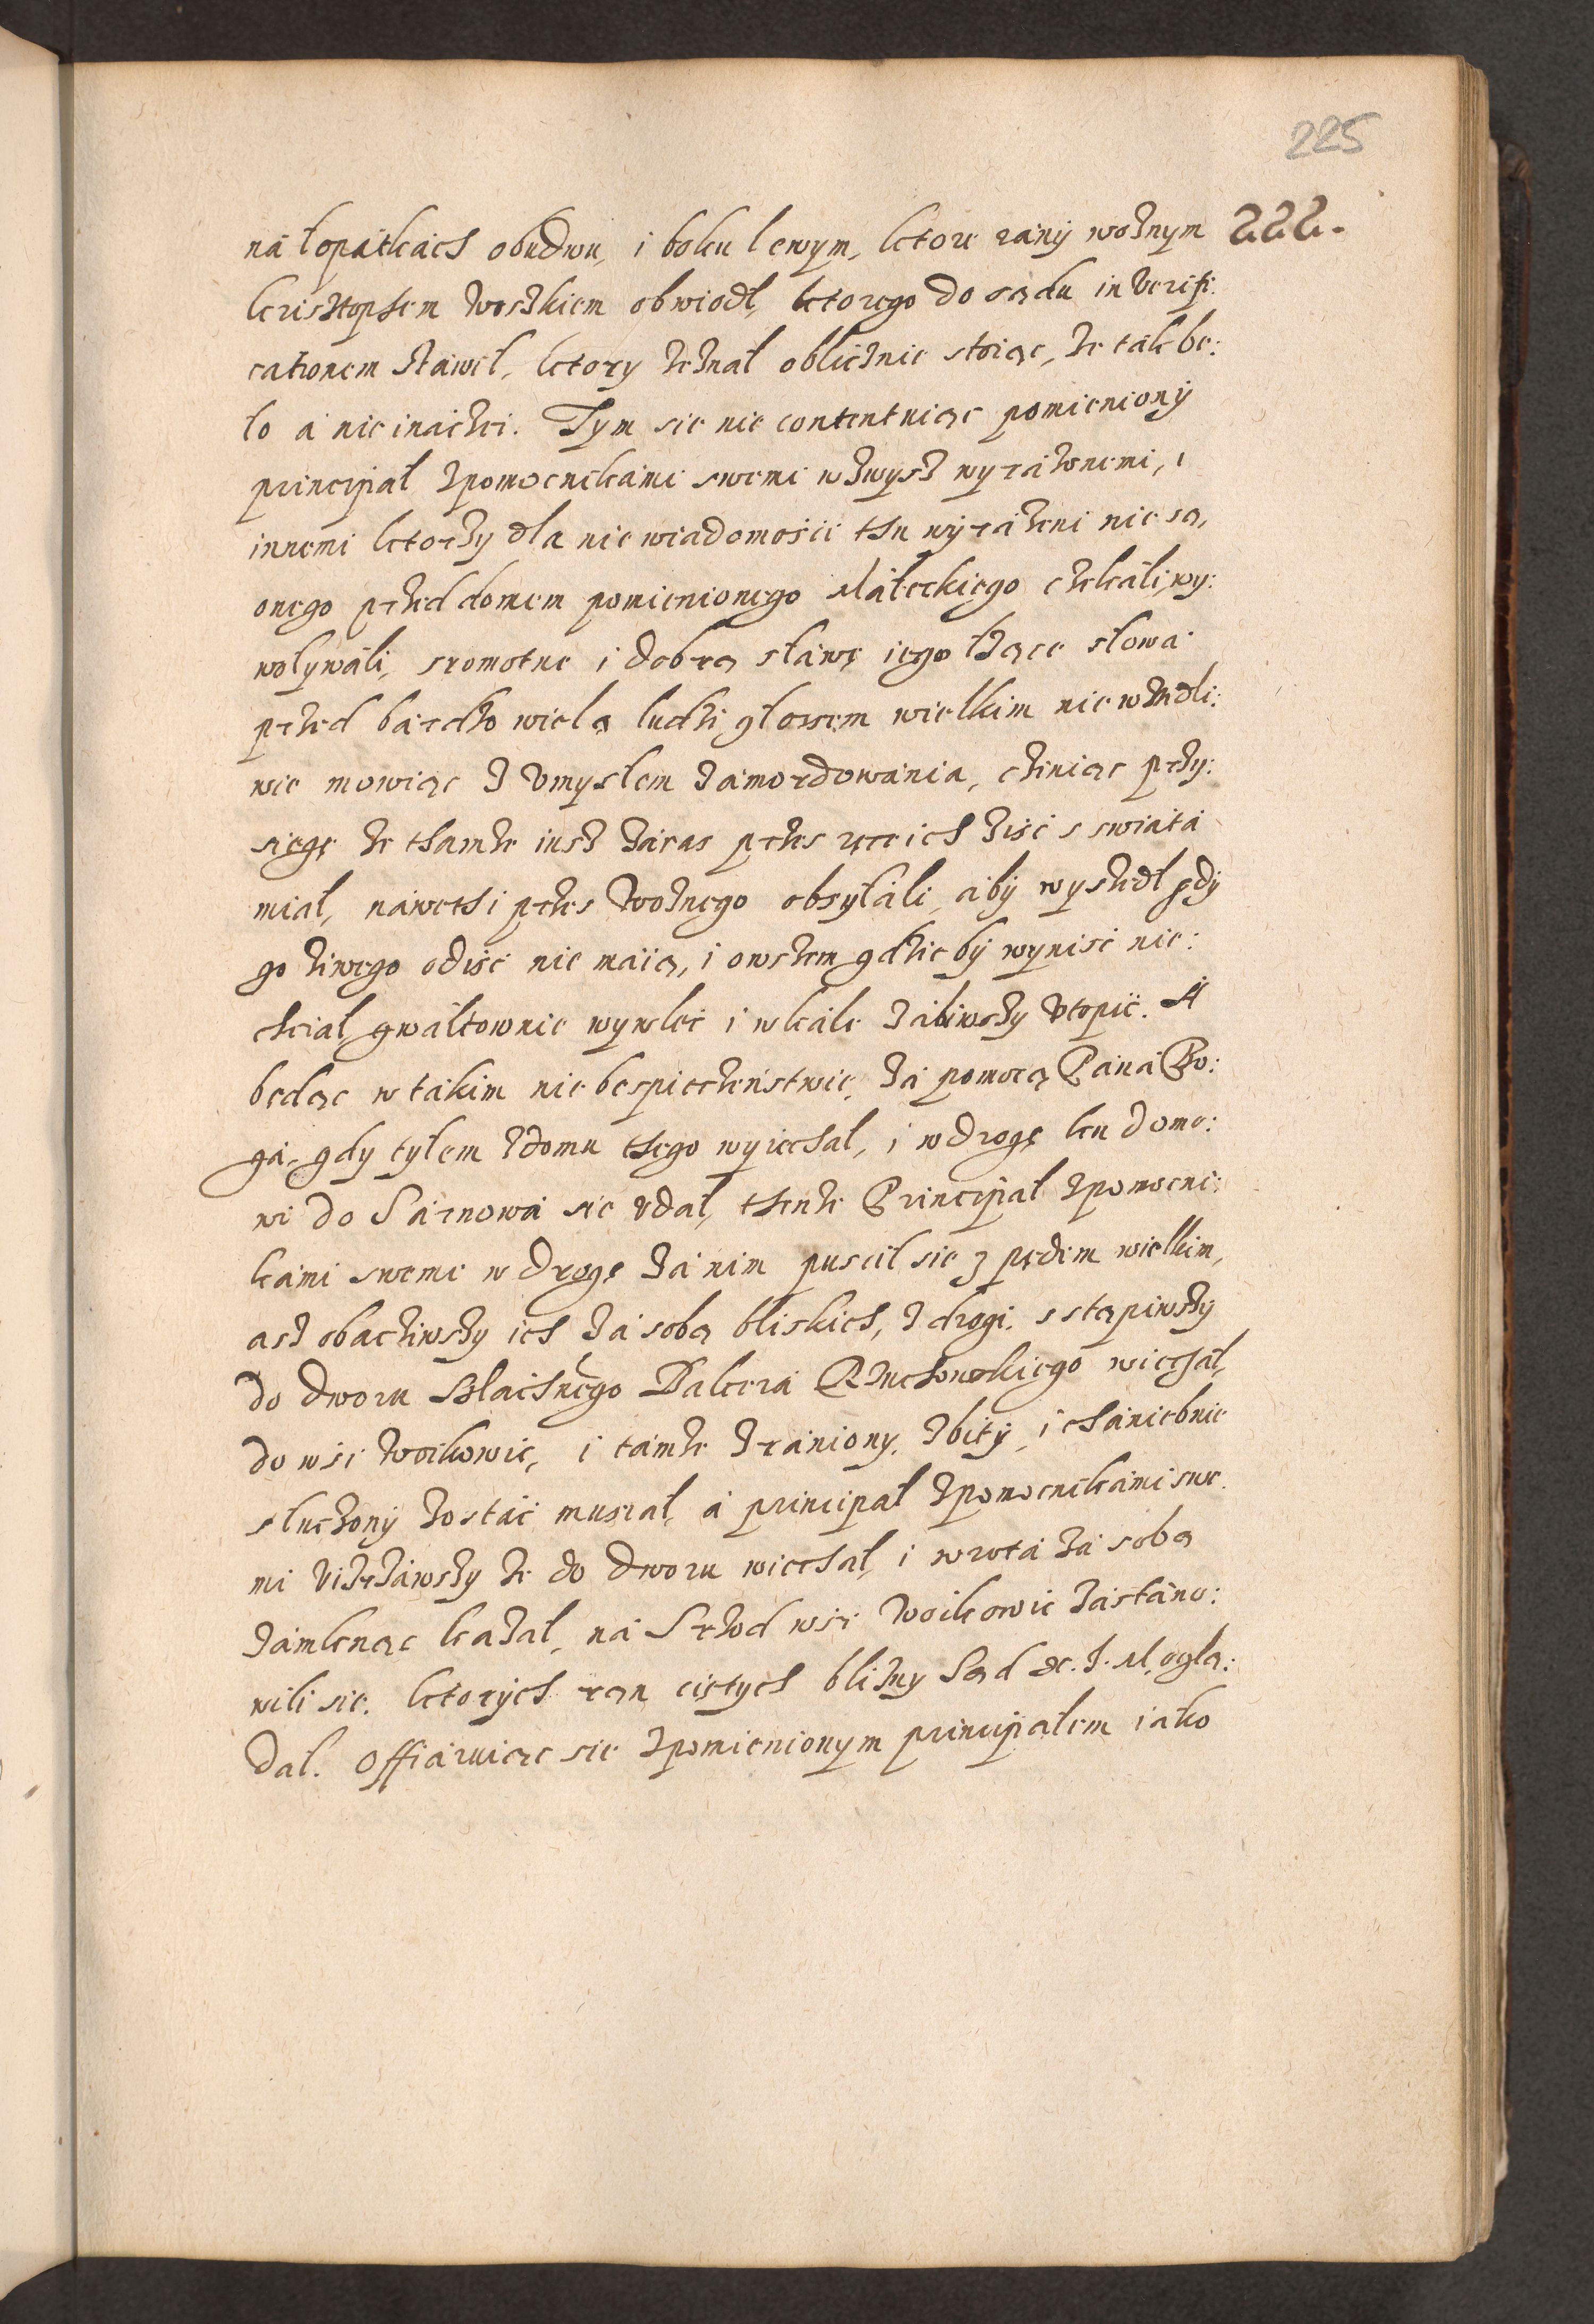 225
222.
ná łopátkách obudwu, i boku lewym, ktore rány woźnym
krisztophem Woszkiem obwiodł, ktorego do sądu in verifi:
cationem stawel, ktory zeznał oblicznie stoiąc, że tak be:
ło á nie inaczei. Tym sie nie contentuiąc pomieniony
principał zpomocnikami swemi wzwysz wyrażonemi, i
innemi ktorzy dla nie wiadomości thu wyrażeni nie są,
onego przed domem pomienionego Máłeckiego czekáli, wy:
woływáli, sromotne i dobrą sławę iego lżące słowá
przed bárdzo wielą ludzi głossem wielkim nie wstydli:
wie mowiąc z umysłem zámordowánia, cziniąc przy:
sięgę że thamże iusz záraz przes ręce ich ziść s swiátá
miał, náweth i przes Woźnego obsyłáli, áby wyszedł gdy
go żiwego odiść nie máią, i owszem gdzie by wyniść nie:
chciał, gwałtownie wywlec i wkále zábiwszy utopić. A
będąc w tákim nie bespieczeństwie, zá pomocą Páná Bo:
gá, gdy tyłem zdomu thego wyiechał, i w drogę ku domo:
wi do Sárnowá sie udał, thenże Principał zpomocni:
kámi swemi w drogę zá nim puscił sie z pędem wielkim,
asz obacziwszy ich zá sobą bliskich, z drogi sstąpiwszy
do dworu szláchnego Balcera Rzuchowskiego wiechał,
do wśi Woikowic, i támże zrániony, zbity, i chániebnie
słuczony zostáć musiał, á principał zpomocnikámi swe:
mi uizrzáwszy że do dworu wiechał, i wrotá zá sobą
zámknąc kazał, ná Srzod wśi Woikowic zástáno:
wili sie. ktorych ran ciętych blizny Sąd &c. J. M. oglą:
dał. Offiáruiąc sie zpomienionym principałem iáko